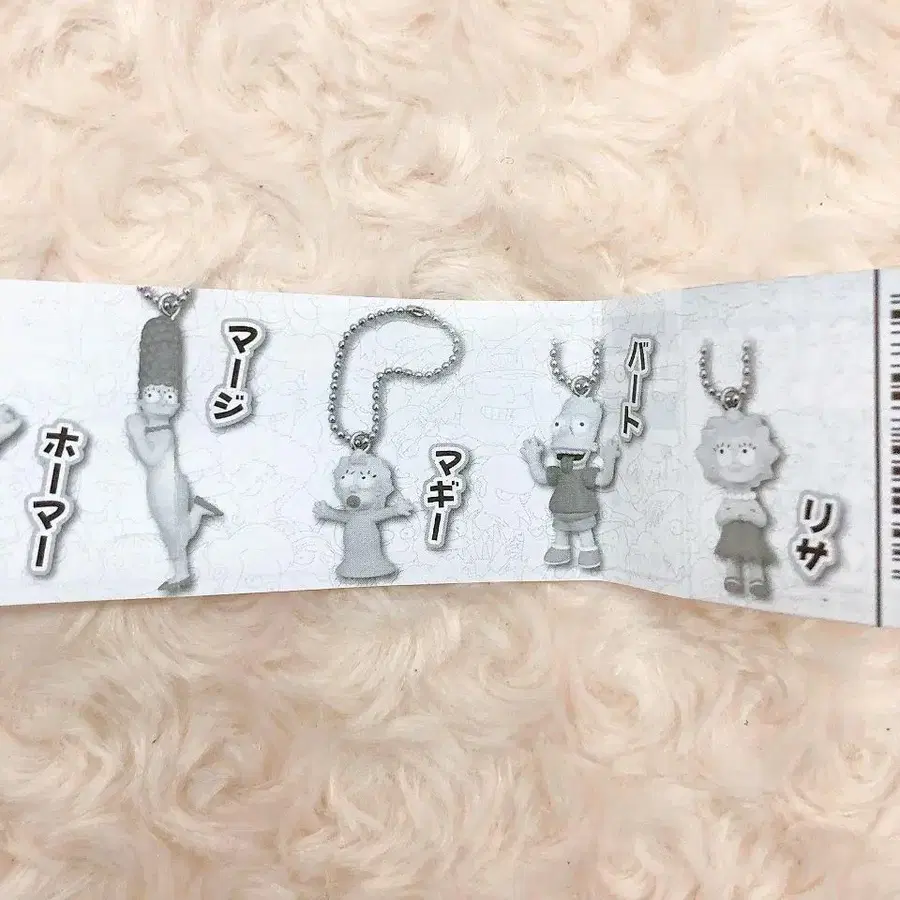 ホーマー
マージ
マギー
バート
リサ